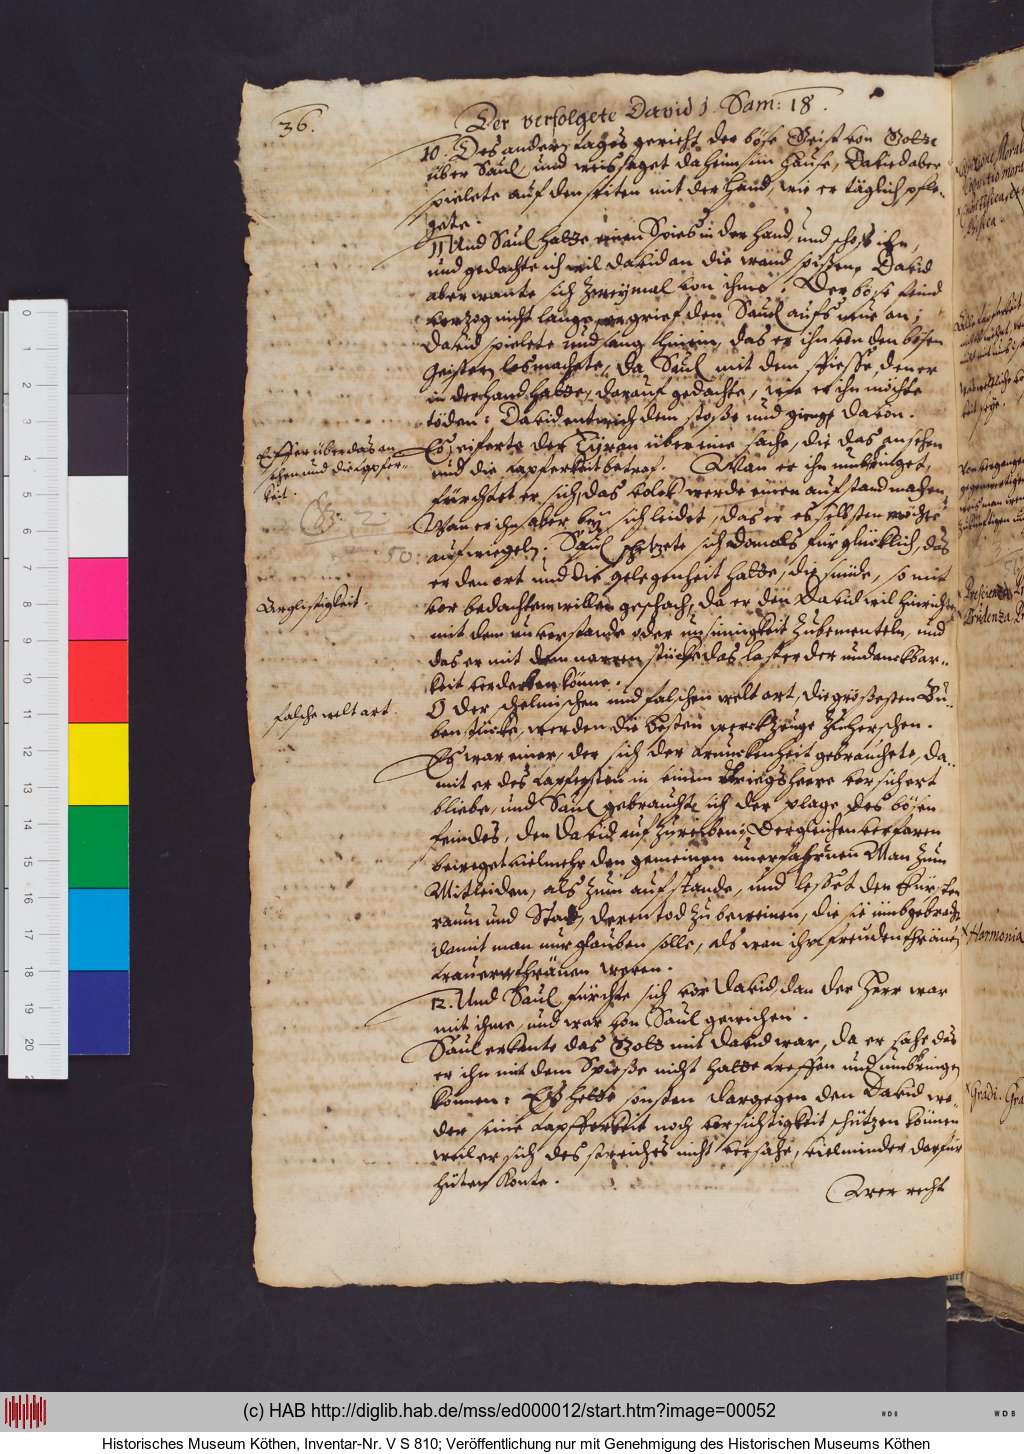 36.
Der verfolgete David 1. Sam: 18.
10. Des andern tages gerieht der böse Geist von Gotte
über Saul und weissaget daheim im hause, David aber
spielete auf den seiten mit der hand, wie er täglich pfle-
gete.
11 Und Saul hatte einen Spies in der hand, und schoß ihn,
und gedachte ich wil David an die wand spißen, David
aber wante sich zweymal von ihme. Der böse feind
verzog nicht lange, er grief den Saul aufs neue an;
David spielete und sang hinein, das er ihn von den bösen
Geistern losmachete, da Saul mit dem spiesse, den er
in der hand hatte, darauf gedachte, wie er ihn möchte
töden: David entwich dem stoße und gienge davon.
Eiffer über das an
sehen und die tapfer-
keit.
Es eiferte der Tyran über eine sache, die das ansehen
und die tapferkeit betraf. Wan er ihn umbringet,
fürchtet er sich, das volck werde einen aufstand machen
Wan er ihn aber bey sich leidet, das er es selbsten möchte
50:
aufwiegeln: Saul schetzete sich damals für glücklich, das
er den ort und die gelegenheit hatte, die sünde, so mit
Arglistigkeit.
vor bedachtem willen geschach, da er den David wil hinrichten
mit dem unverstande oder unsinnigkeit zubementeln, und
das er mit dem narren stücke das laster der undanckbar-
keit verdecken könne.
falsche welt art.
O der schelmischen und falschen welt art, die großesten Bu-
benstücke, werden die besten werckzeuge zuherschen.
Es war einer, der sich der trunckenheit gebrauchete, da-
mit er des tapfersten in einem Kriegsheere versichert
bliebe, und Saul gebrauchte sich der plage des bösen
feindes, den David aufzureiben; Dergleichen verfaren
beweget vielmehr den gemeinen unerfahrnen Man zum
Mitleiden, als zum aufstande, und lesset den Fürsten
raum und Stad, deren tod zubeweinen, die sie umbgebracht
damit man nur glauben solle, als wan ihre freudenthränen
trauerthränen weren.
12. Und Saul fürchte sich vor David, dan der Herr war
mit ihme, und war von Saul gewichen.
Saul erkente das Gott mit David war, da er sahe das
er ihn mit dem Spieße nicht hatte treffen und umbringen
können: Es hette sonsten dargegen den David we-
der seine tapfferkeit noch versichtigkeit schützen können
weil er sich des streiches nicht versahe, vielminder darfür
hüten konte.
Wer recht
Harmonia
Gradi.
0
1
2
3
4
5
6
7
8
9
10
11
12
13
14
15
16
17
18
19
20
(c) HAB http://diglib.hab.de/mss/ed000012/start.htm?image=00052
WDB
WDB
Historisches Museum Köthen, Inventar-Nr. V S 810; Veröffentlichung nur mit Genehmigung des Historischen Museums Köthen